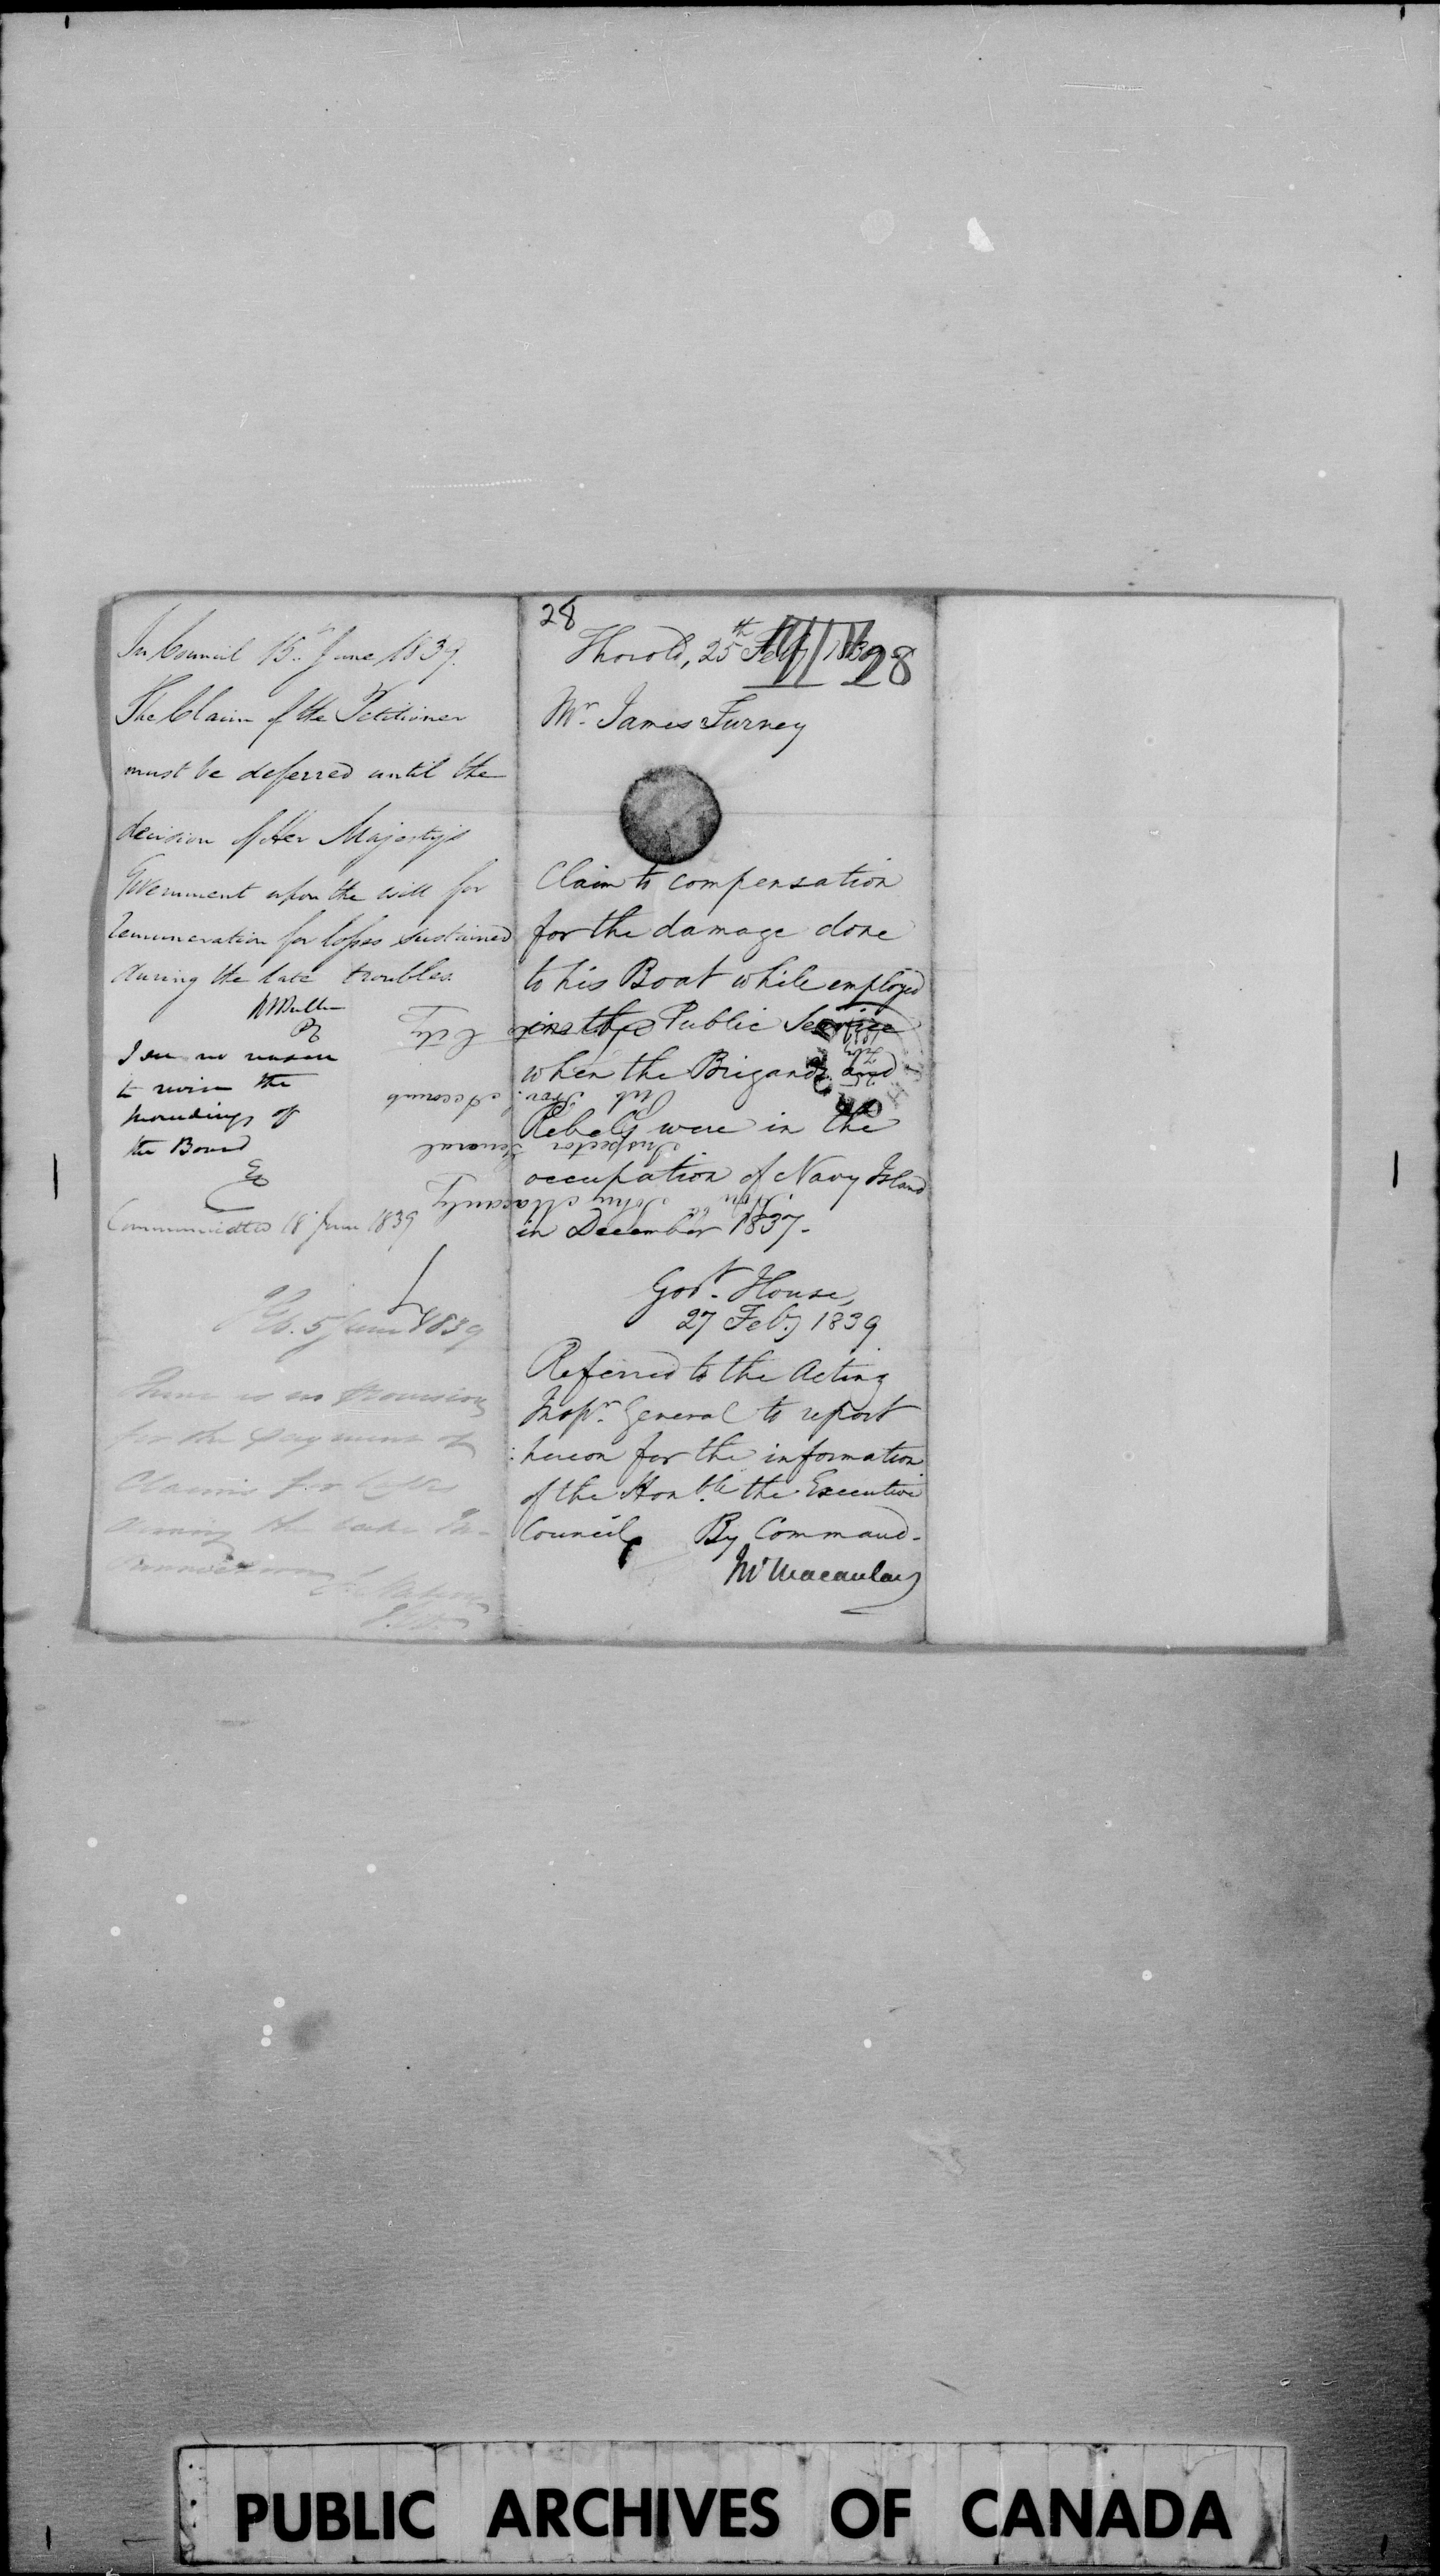 In Council 15th June, 1839.
The Claim of the Petitioner
must be deferred until the
decision of Her Majesty's
Government upon the bill for
remuneration for losses sustained
during the late troubles.
I see no reason
to revise the
proceedings of
the Board
Communicated 18 June 1839
5 June 1839
There is no provision
for the payment of
Claims for losses
during the late In-
28
Thorold, 25th Feby 1839
III 28
Mr. James Turney
Claim to compensation
for the damage done
to his Boat while employed
in the Public Service
when the Brigands and
Rebels were in the
occupation of Navy Island
in December 1837.
Govt. House,
27 Feby 1839
Referred to the Acting
Inspr. General to report
hereon for the information
of the Honble. the Executive
Council. By Command.
Jno Macaulay
Honble John Macaulay
Inspector General
Pub. Prov. Accounts
City
PUBLIC ARCHIVES OF CANADA